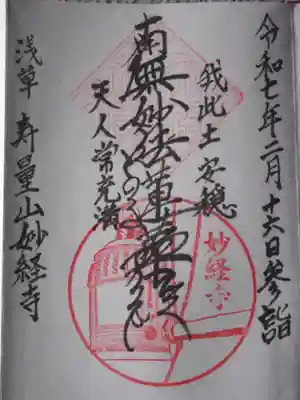 令和七年二月十六日参詣
我此土安穏
南無妙法蓮華経
天人常充満
浅草 寿量山妙経寺
妙経寺